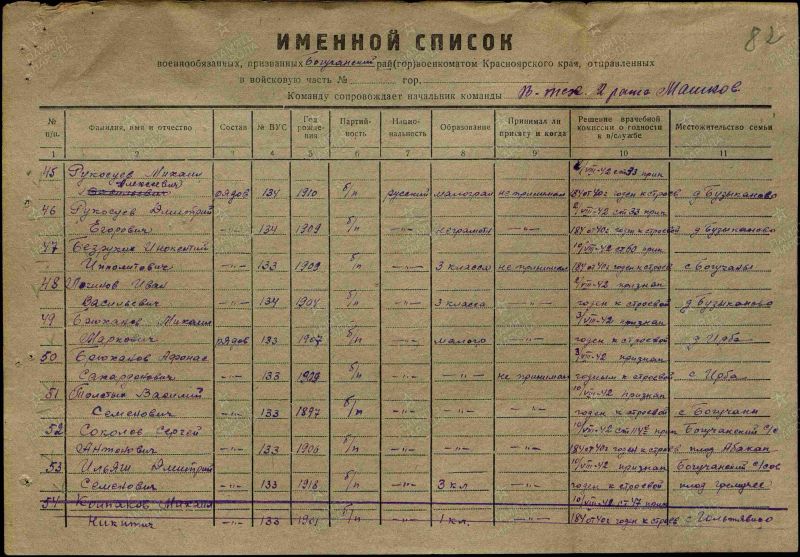 82
ИМЕННОЙ СПИСОК
военнообязанных, призванных Богучанский рай(гор)военкоматом Красноярского края, отправленных
в войсковую часть № гор.
Команду сопровождает начальник команды В-тех. 2 ранга Машков
№ п/п. Фамилия, имя и отчество Состав № ВУС Год рождения Партийность Национальность Образование Принимал ли присягу и когда Решение врачебной комиссии о годности к в/службе Местожительство семьи
1 2 3 4 5 6 7 8 9 10 11
45 Рукосуев Михаил /VIII-42 ст 33 прик
Алексеевич
рядов 134 1910 б/п русский малограм не принимал 184 от 40г годен к строев д. Бузыканово
46 Рукосуев Дмитрий 2/VIII-42 ст 33 прик
Егорович —"— 134 1909 б/п —"— неграмотн —"— 184 от 40г годен к строевой д. Бузыканово
47 Безруких Инокентий /VIII-42 прик
Ипполитович —"— 133 1909 б/п —"— 3 класса не принимал 184 от 40г годен к строев с Богучаны
48 Логинов Иван /VIII-42 признан
Васильевич —"— 134 б/п —"— 3 класса —"— годен к строевой д. Бузыканово
49 Брюханов Михаил 3/VIII-42 признан
Маркович рядов 133 1907 б/п —"— малогр —"— годен к строевой д Ирба
50 Брюханов Афонас 3/VIII-42 признан
—"— 133 1909 б/п —"— —"— не принимал годным к строевой с Ирба
51 Толстых Василий 10/VIII-42 признан
Семенович —"— 133 1897 б/п —"— —"— —"— годен к строевой с Богучаны
52 Соколов Сергей 10/VIII-42 прик Богучанский с/с
Антонович —"— 133 1906 б/п —"— —"— —"— 184 от 40г годен к строев плод Абакан
53 Ильяш Дмитрий 10/VIII-42 признан Богучанский с/сов
Семенович —"— 133 1918 б/п —"— 3 кл —"— годен к строевой
54 Михаил 10/VIII-42 ст 47 прик
Никитич —"— 133 1901 б/п —"— 1 кл. —"— 184 от 40г годен к строев